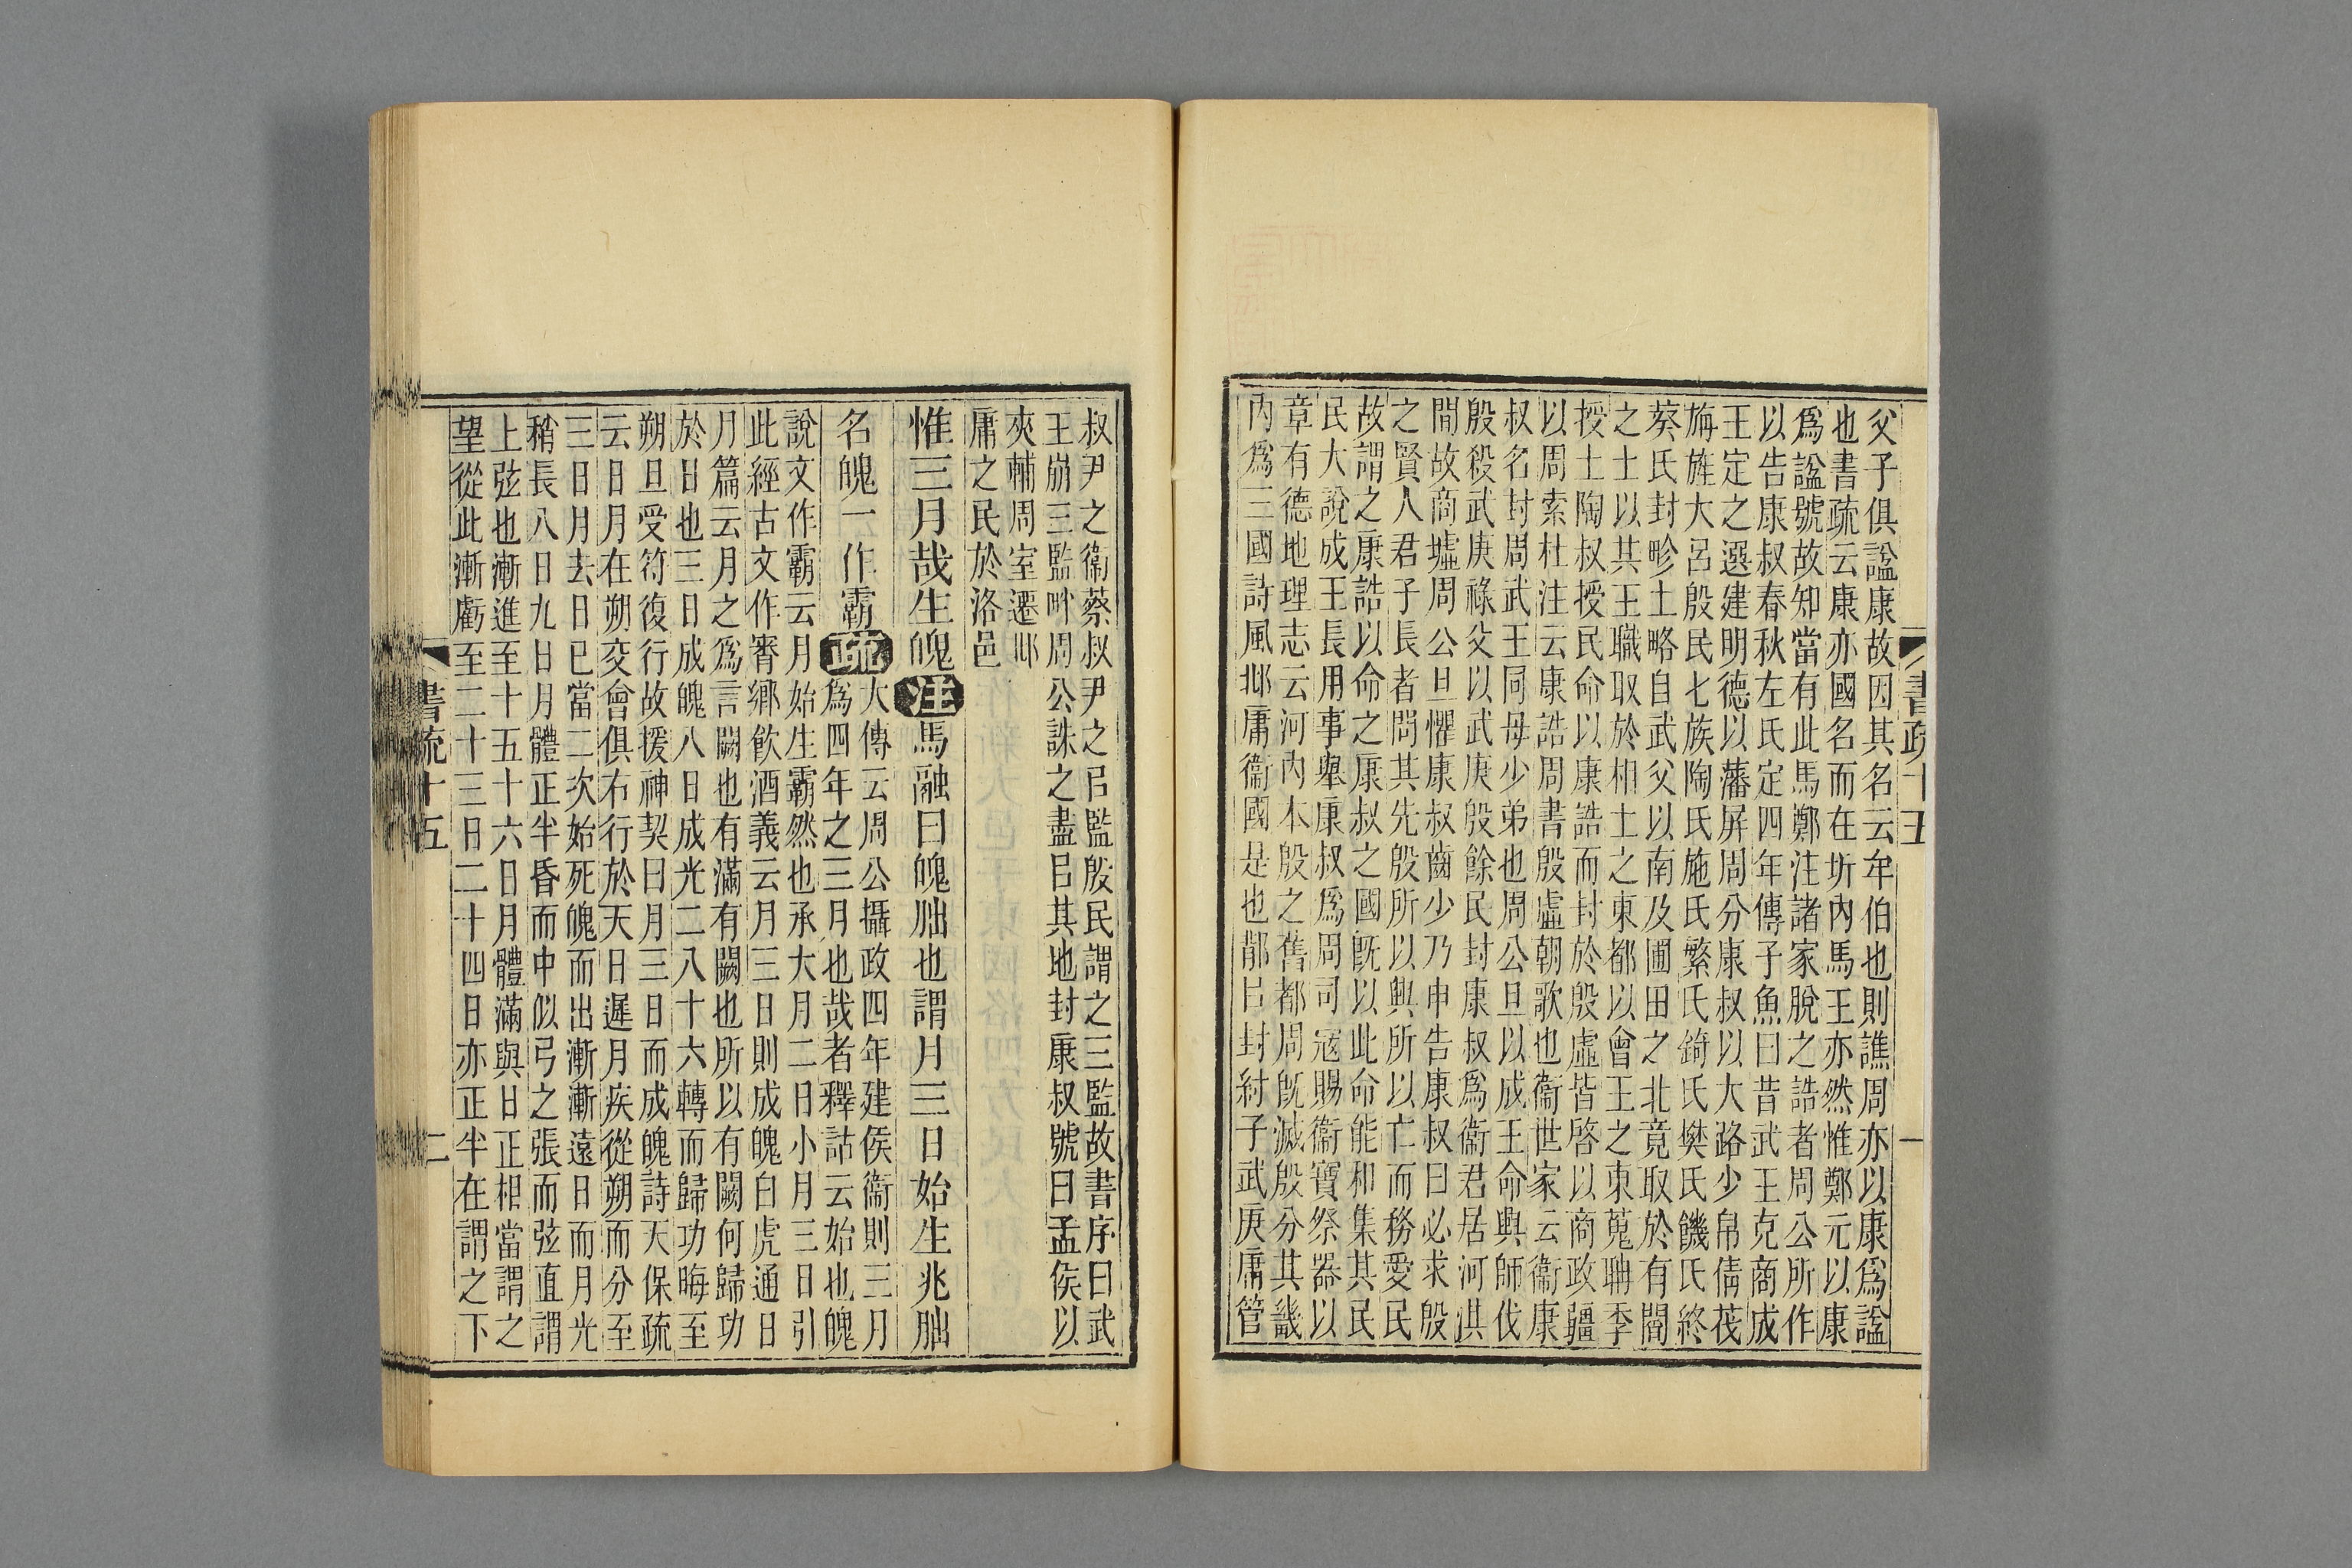 書疏十五
一
父子俱諡康故因其名云牟伯也則譙周亦以康爲諡
也書疏云康亦國名而在圻內馬王亦然惟鄭元以康
爲諡號故知當有此馬鄭注諸家脫之誥者周公所作
以告康叔春秋左氏定四年傳子魚曰昔武王克商成
王定之選建明德以藩屏周分康叔以大路少帛綪茷
旃旌大呂殷民七族陶氏施氏繁氏錡氏樊氏饑氏終
葵氏封畛土略自武父以南及圃田之北竟取於有閻
之土以共王職取於相土之東都以會王之東蒐聃季
授土陶叔授民命以康誥而封於殷虛皆啓以商政疆
以周索杜注云康誥周書殷虛朝歌也衞世家云衞康
叔名封周武王同母少弟也周公旦以成王命興師伐
殷殺武庚祿父以武庚殷餘民封康叔爲衞君居河淇
間故商墟周公旦懼康叔齒少乃申告康叔曰必求殷
之賢人君子長者問其先殷所以興所以亡而務愛民
故謂之康誥以命之康叔之國旣以此命能和集其民
民大說成王長用事舉康叔爲周司寇賜衞寶祭器以
章有德地理志云河內本殷之舊都周旣滅殷分其畿
內爲三國詩風邶庸衞國是也鄁㠯封紂子武庚庸管
叔尹之衞蔡叔尹之㠯監殷民謂之三監故書序曰武
王崩三監畔周公誅之盡㠯其地封康叔號曰孟侯以
夾輔周室遷邶
庸之民於洛邑
惟三月哉生魄注馬融曰魄朏也謂月三日始生兆朏
名魄一作霸疏大傳云周公攝政四年建侯衞則三月
爲四年之三月也哉者釋詁云始也魄
說文作霸云月始生霸然也承大月二日小月三日引
此經古文作䨣鄉飲酒義云月三日則成魄白虎通日
月篇云月之爲言闕也有滿有闕也所以有闕何歸功
於日也三日成魄八日成光二八十六轉而歸功晦至
朔旦受符復行故援神契曰月三日而成魄詩天保疏
云日月在朔交會俱右行於天日遲月疾從朔而分至
三日月去日已當二次始死魄而出漸漸遠日而月光
稍長八日九日月體正半昏而中似弓之張而弦直謂
上弦也漸進至十五十六日月體滿與日正相當謂之
望從此漸虧至二十三日二十四日亦正半在謂之下
書疏十五
二